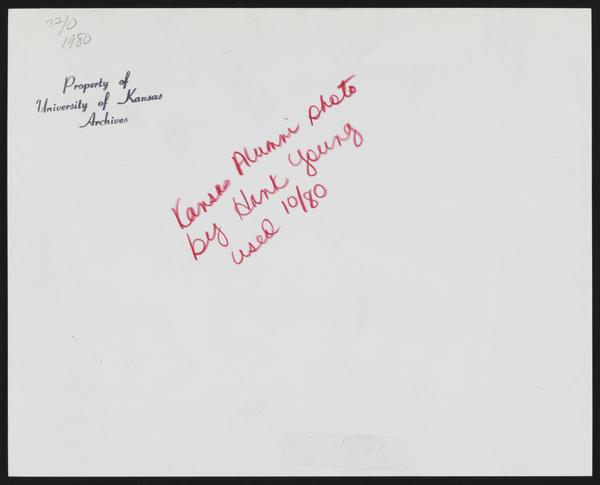 32/0
1980
Property of
University of Kansas
Archives
Kansas Alumni photo
by Hank Young
used 10/80